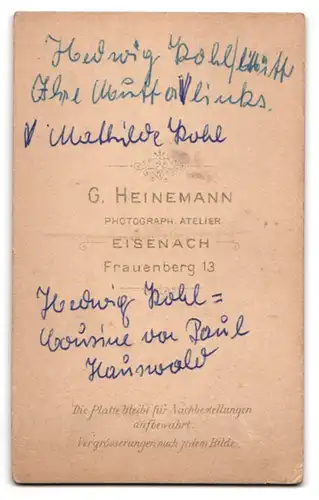 Hedwig Kohl/Mitte
Ihre Mutter V links.
V Mathilde Kohl
G. HEINEMANN
PHOTOGRAPH. ATELIER
EISENACH
Frauenberg 13
Hedwig Kohl =
Cousine von Paul
Hauswald
Die Platte bleibt für Nachbestellungen
aufbewahrt.
Vergrösserungen nach jedem Bilde.